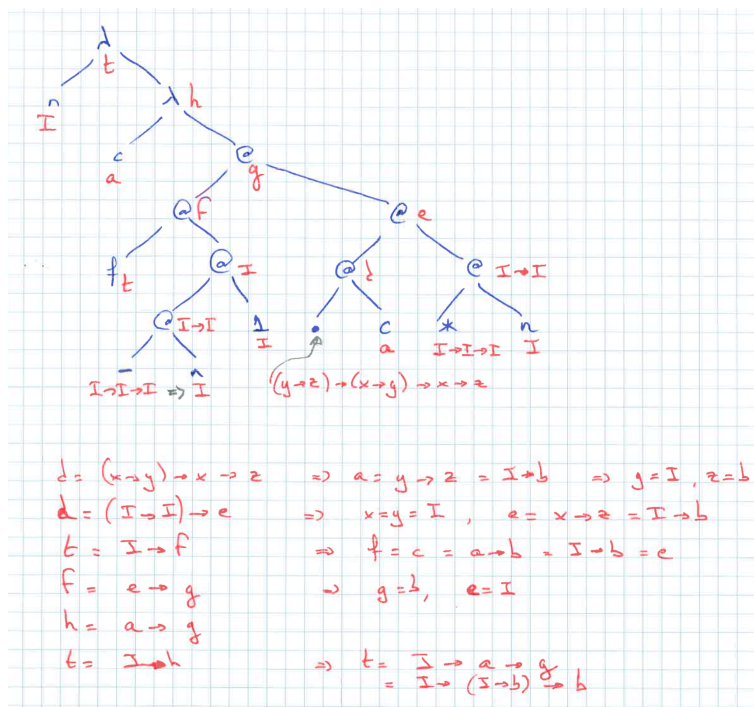 λ
t
n
I
λ h
c
a
@
g
@ f
@ e
f
t
@ I
@ d
@ I→I
@ I→I
1
I
•
c
a
*
I→I→I
n
I
–
I→I→I => n
I
(y→z)→(x→y)→x→z
d = (x→y)→x→z => a = y→z = I→b => y=I, z=b
d = (I→I)→e => x=y=I, e = x→z = I→b
t = I→f => f = c = a→b = I→b = e
f = e→g => g=b, e=I
h = a→g
t = I→h => t = I→a→g
= I→(I→b)→b